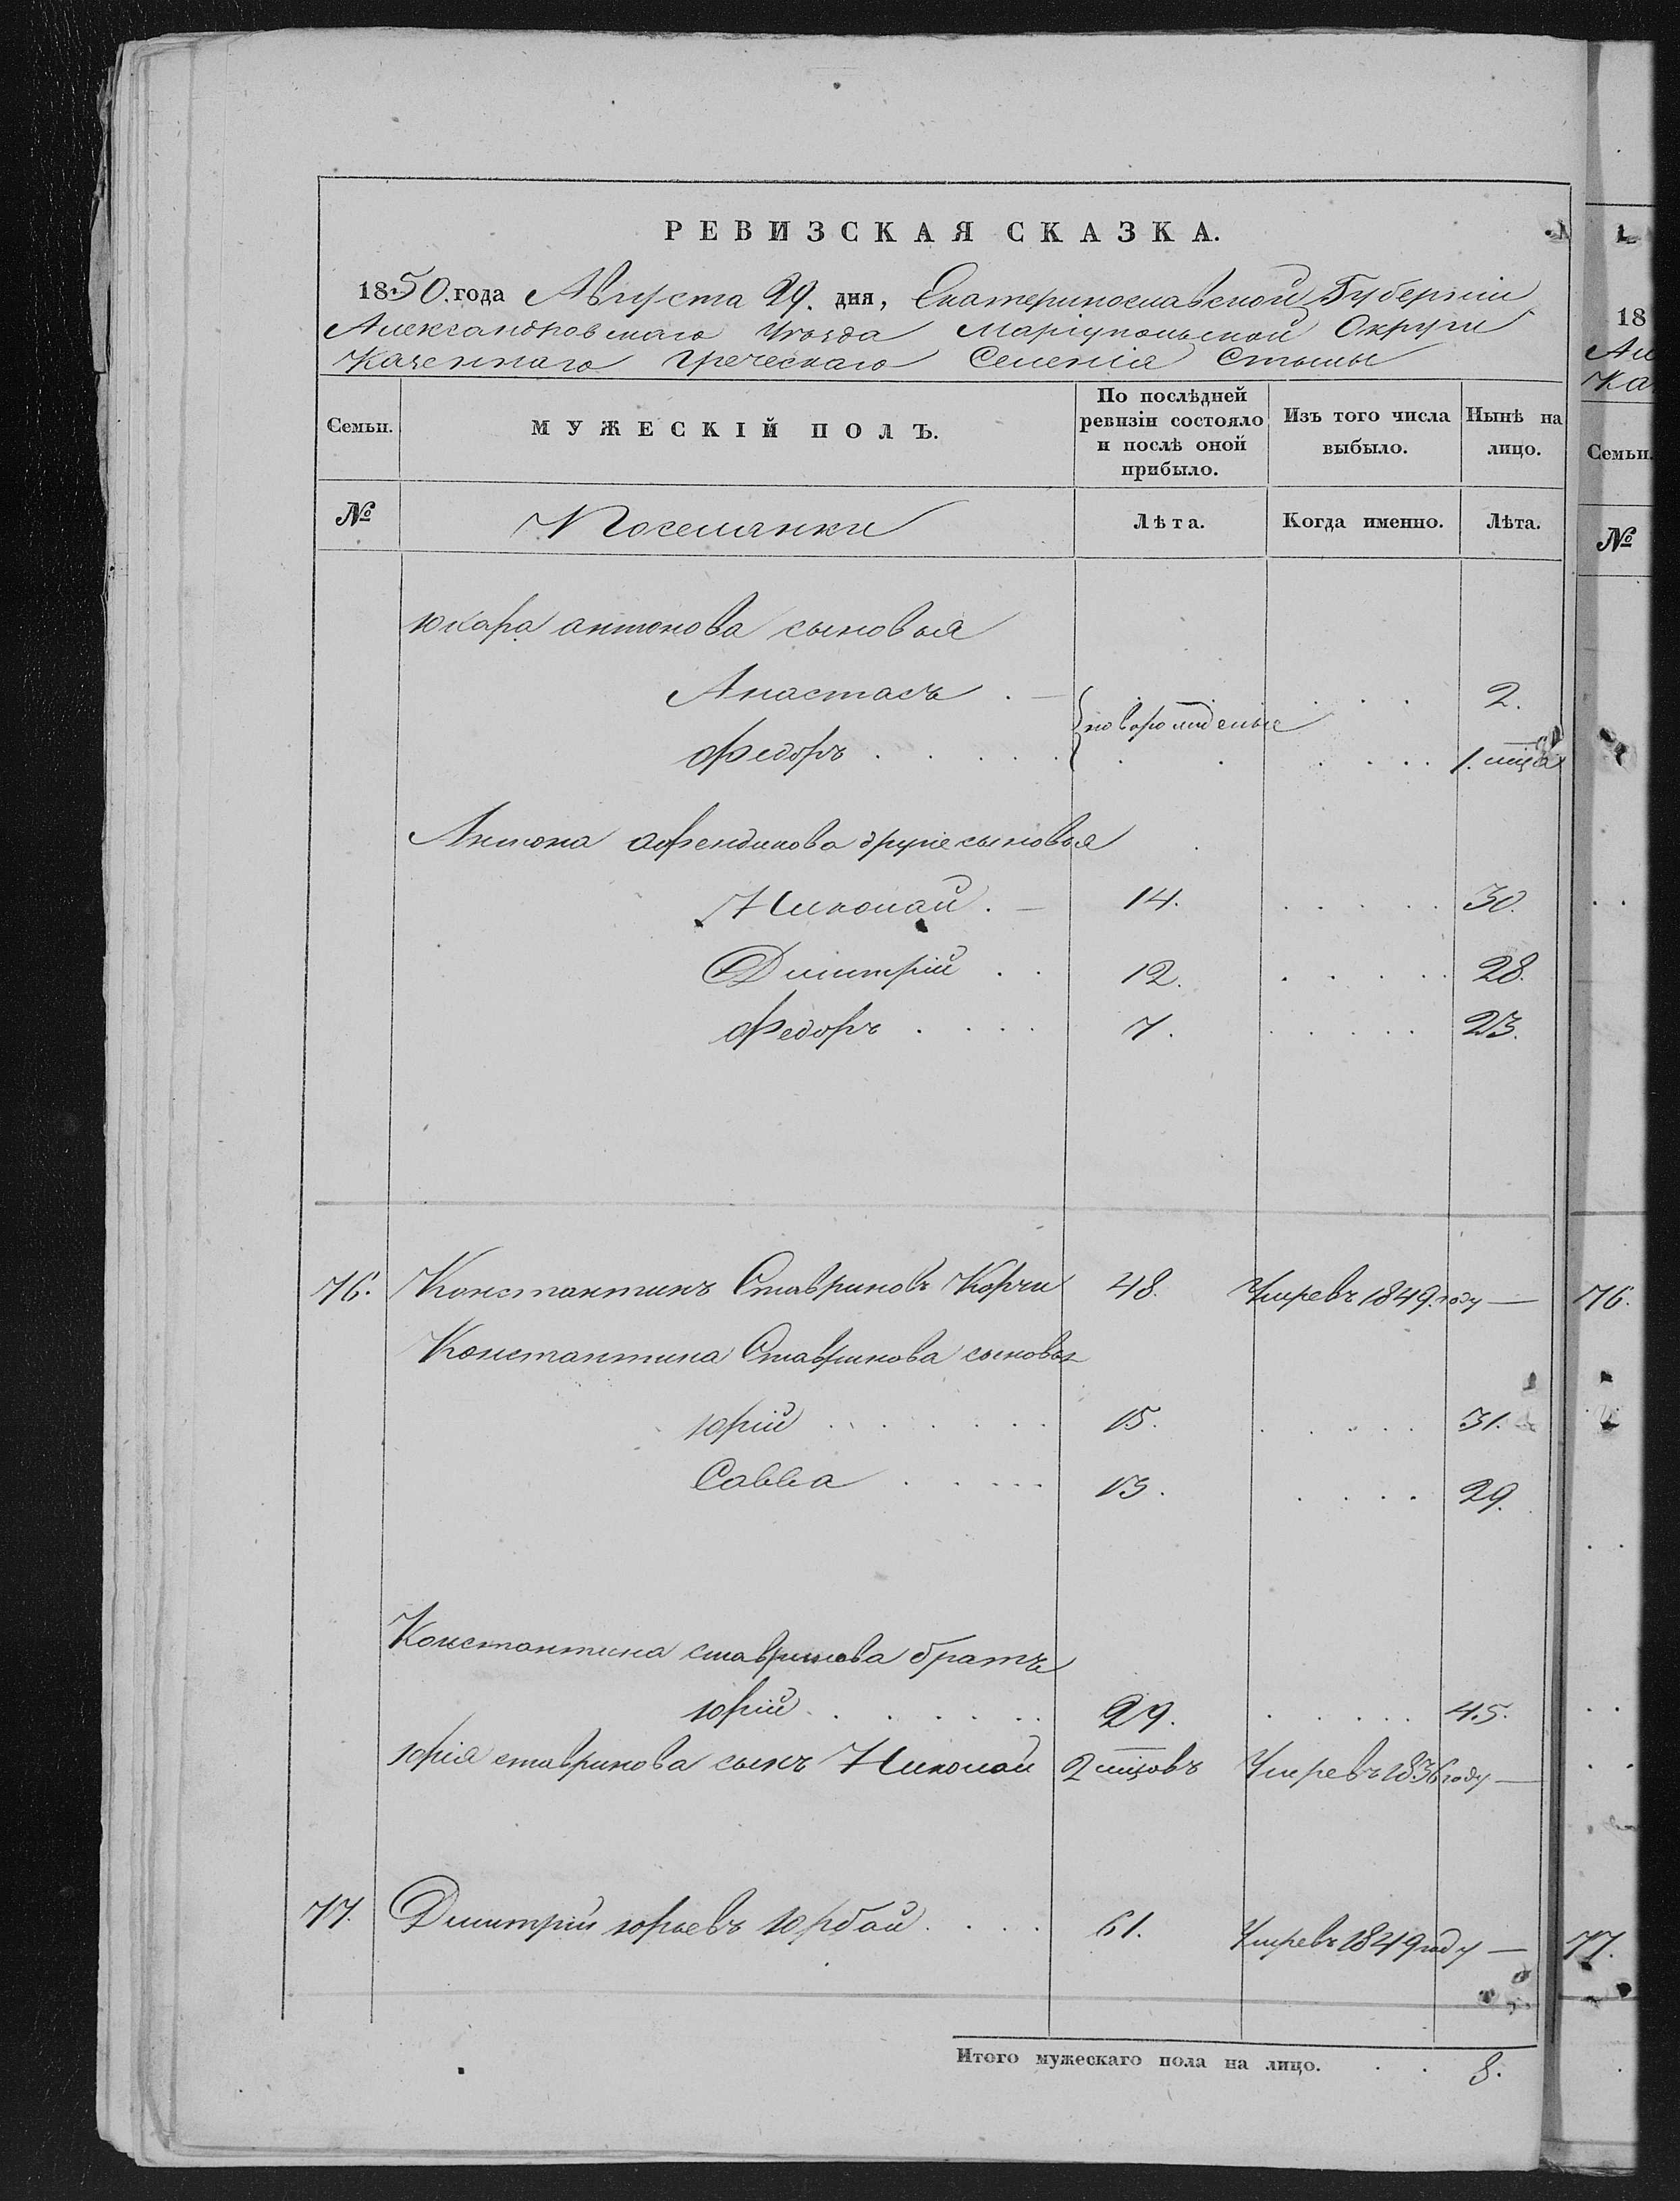 РЕВИЗСКАЯ СКАЗКА.
1850. года Августа 29. дня, Екатеринославской Губернии
Александровскаго Уѣзда Маріупольской Округи
Казеннаго Греческаго Селенія Стылы
Семьи. МУЖЕСКІЙ ПОЛЪ. По послѣдней ревизіи состояло и послѣ оной прибыло. Изъ того числа выбыло. Нынѣ на лицо.
№ Поселянки Лѣта. Когда именно. Лѣта.
антонова сыновья
Анастасъ . — новорожденые . . . 2.
Федоръ . . . . . . . . . . 1. мца
Антона афендикова другіе сыновья
Николай . — 14. . . . . . 30.
Дмитрій . . 12. . . . . . 28.
Федоръ . . . . 7. . . . . . 23.
76. Константинъ Ставриновъ Корчи 48. Умревъ 1849. году —
Константина Ставринова сыновья
юрій . . . . . . . 15. . . . . . 31.
Савва . . . . . 13. . . . . 29.
Константина ставринова братъ
юрій . . . . . . 29. . . . . . 45.
юрія ставринова сынъ Николай 2 мцовъ Умревъ 1836 году —
77. Дмитрій юрьевъ Юрбай . . . . 61. Умревъ 1849 году —
Итого мужескаго пола на лицо. . . 8.
1
18
Ал
Ка
Семьи.
№
76.
77.